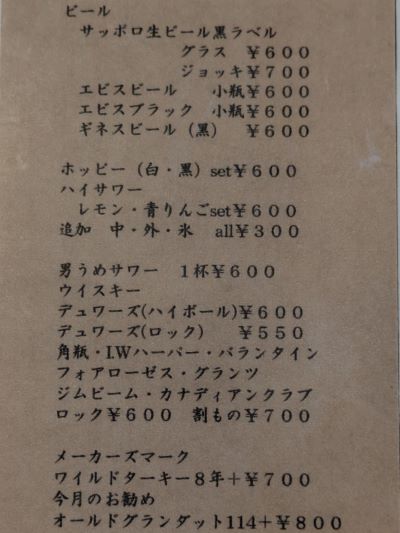 ビール
サッポロ生ビール黒ラベル
グラス ¥600
ジョッキ¥700
エビスビール 小瓶¥600
エビスブラック 小瓶¥600
ギネスビール(黒) ¥600
ホッピー(白・黒)set¥600
ハイサワー
レモン・青りんごset¥600
追加 中・外・氷 all¥300
男うめサワー 1杯¥600
ウイスキー
デュワーズ(ハイボール)¥600
デュワーズ(ロック) ¥550
角瓶・I.Wハーパー・バランタイン
フォアローゼス・グランツ
ジムビーム・カナディアンクラブ
ロック¥600 割もの¥700
メーカーズマーク
ワイルドターキー8年+¥700
今月のお勧め
オールドグランダット114+¥800